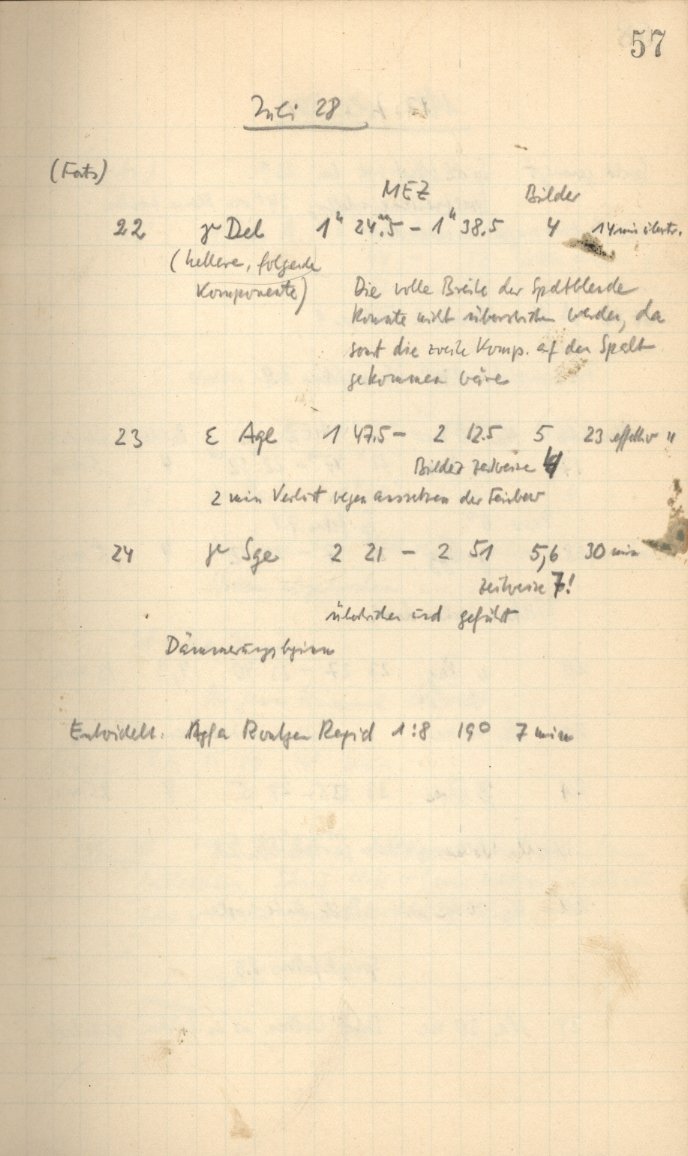 57
Juli 28
(Forts)
MEZ Bilder
22 γ Del 1ʰ 24ᵐ.5 – 1ʰ 38.5 4 14 min
(hellere, folgende
Komponente)
Die volle Breite der Spaltblende
konnte nicht überstrichen werden, da
sonst die zweite Komp. auf den Spalt
gekommen wäre
23 ε Aql 1 47.5 – 2 12.5 5 23 effektiv "
Bilder zeitweise 4
2 min Verlust wegen aussetzen der
24 γ Sge 2 21 – 2 51 5,6 30 min
zeitweise 7!
überstrichen und geführt
Dämmerungsbeginn
Entwickelt. Agfa Röntgen Rapid 1:8 19° 7 min